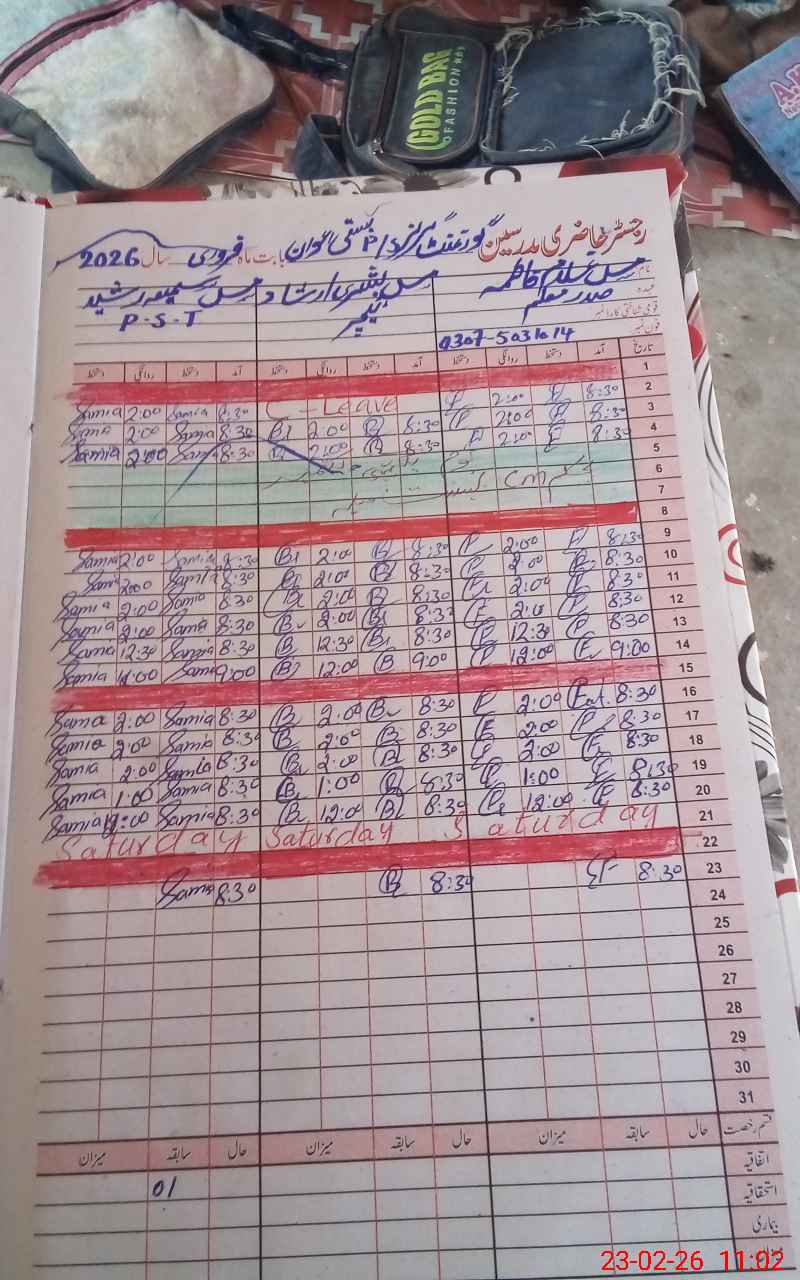 GOLD BAG
OFASHION
رجسٹر حاضری مدرسین گورنمنٹ گرلز P/S بستی اعوان بابت ماہ فروری سال 2026
نام
مس سلام فاطمہ مس بشری ارشاد مس سمیعہ رشید
عہدہ
صدر معلمہ ٹیچر P.S.T
قومی شناختی کارڈ نمبر
فون نمبر 0307-5031014
تاریخ آمد دستخط روانگی دستخط آمد دستخط روانگی دستخط آمد دستخط روانگی دستخط
1
2 8:30 2:00 C - Leave 8:30 Samia 2:00 Samia
3 8:30 2:00 8:30 B 2:00 B 8:30 Samia 2:00 Samia
4 8:30 2:00 8:30 B 2:00 B 8:30 Samia 2:00 Samia
5
6 cm
7
8
9 8:30 2:00 8:30 B 2:00 B 8:30 Samia 2:00 Samia
10 8:30 2:00 8:30 B 2:00 B 8:30 Samia 2:00 Samia
11 8:30 2:00 8:30 B 2:00 B 8:30 Samia 2:00 Samia
12 8:30 2:00 8:30 B 2:00 B 8:30 Samia 2:00 Samia
13 8:30 12:30 8:30 B 12:30 B 8:30 Samia 12:30 Samia
14 9:00 12:00 9:00 B 12:00 B 9:00 Samia Samia
15
16 8:30 2:00 8:30 B 2:00 B 8:30 Samia 2:00 Samia
17 8:30 2:00 8:30 B 2:00 B 8:30 Samia 2:00 Samia
18 8:30 2:00 8:30 B 2:00 B 8:30 Samia 2:00 Samia
19 8:30 1:00 8:30 B 1:00 B 8:30 Samia 1:00 Samia
20 8:30 12:00 8:30 B 12:00 B 8:30 Samia 12:00 Samia
21 Saturday Saturday Saturday
22
23 8:30 8:30 B 8:30 Samia
24
25
26
27
28
29
30
31
قسم رخصت حال سابقہ میزان حال سابقہ میزان حال سابقہ میزان
اتفاقیہ
استحقاقیہ 01
بیماری
23-02-26 11:02